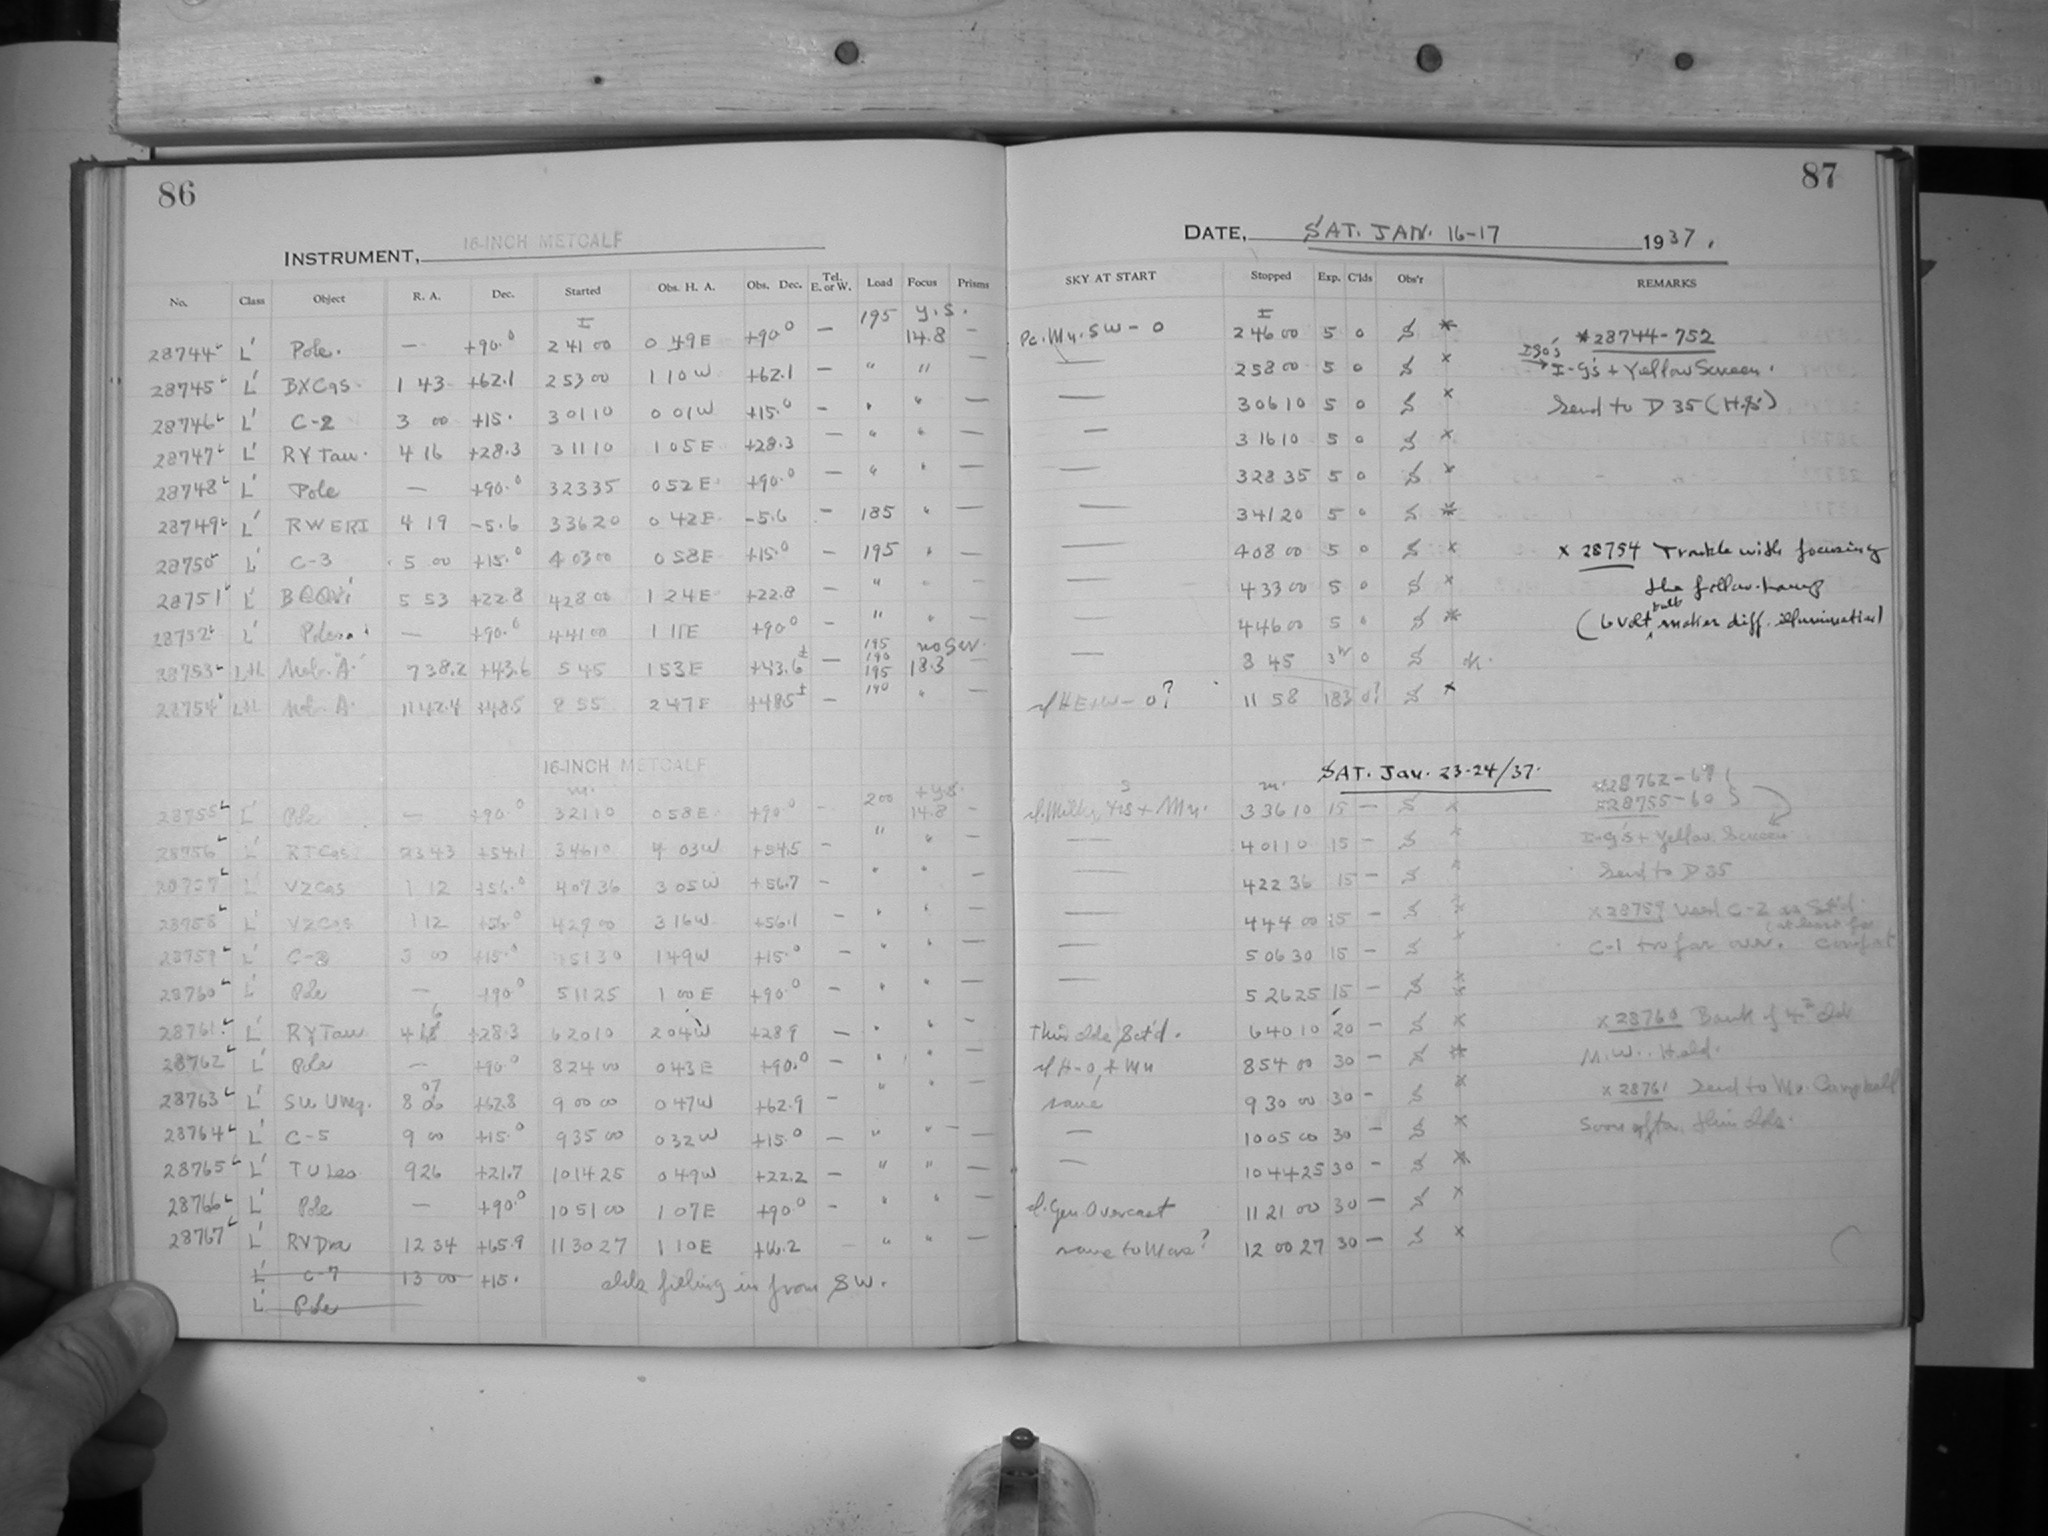 86
INSTRUMENT, 16-INCH METCALF
No. Class Object R. A. Dec. Started Obs. H. A. Obs. Dec. Tel. E. or W. Load Focus Prisms
28744 L' Pole. — +90.0 2 41 00 0 49E +90.0 — 195 Y.S. 14.8 —
28745 L' BXCas. 1 43 +62.1 2 53 00 1 10W +62.1 — " " —
28746 L' C-2 3 00 +15. 3 01 10 0 01W +15.0 — " " —
28747 L' RYTau. 4 16 +28.3 3 11 10 1 05E +28.3 — " " —
28748 L' Pole — +90.0 3 23 35 0 52E +90.0 — " " —
28749 L' RWERI 4 19 -5.6 3 36 20 0 42E -5.6 — 185 " —
28750 L' C-3 5 00 +15.0 4 03 00 0 58E +15.0 — 195 " —
28751 L' BQOri 5 53 +22.8 4 28 00 1 24E +22.8 — " " —
28752 L' Pole — +90.0 4 41 00 1 11E +90.0 — " " —
28753 L+L 7 38.2 +43.6 5 45 1 53E +43.6± — 195 190 195 no Scr. 18.3 —
28754 L+L 11 42.4 +48.5 8 55 2 47E +48.5± — 190 " —
16-INCH METCALF
28755 L' Pole — +90.0 3 21 10 0 58E +90.0 — 200 +Y.S. 14.8 —
28756 L' RTCas. 23 43 +54.1 3 46 10 4 03W +54.5 — " " —
28757 L' VZCas 1 12 +56.0 4 07 36 3 05W +56.7 — " " —
28758 L' VZCas 1 12 +56.0 4 29 00 3 16W +56.1 — " " —
28759 L' 3 00 +15.0 4 51 30 1 49W +15.0 — " " —
28760 L' Pole — +90.0 5 11 25 1 00E +90.0 — " " —
28761 L' RYTau 4 16 +28.3 6 20 10 2 04W +28.9 — " " —
28762 L' Pole — +90.0 8 24 00 0 43E +90.0 — " " —
28763 L' SU UMa. 8 07 +62.8 9 00 00 0 47W +62.9 — " " —
28764 L' C-5 9 00 +15.0 9 35 00 0 32W +15.0 — " " —
28765 L' TULeo. 9 26 +21.7 10 14 25 0 49W +22.2 — " " —
28766 L' Pole — +90.0 10 51 00 1 07E +90.0 — " " —
28767 L' RVDra 12 34 +65.9 11 30 27 1 10E +66.2 " " —
L' C-7 13 00 +15. clds filling in from SW.
L' Pole
87
DATE, SAT. JAN. 16-17 1937.
SKY AT START Stopped Exp. C'lds Obs'r REMARKS
Pc. My. SW - 0 2 46 00 5 0 S * *28744-752
— 2 58 00 5 0 S x I-G's + Yellow Screen.
— 3 06 10 5 0 S x Send to D 35 (H.S.)
— 3 16 10 5 0 S x
— 3 28 35 5 0 S x
— 3 41 20 5 0 S *
— 4 08 00 5 0 S x x 28754 Trouble with focusing
— 4 33 00 5 0 S x the follow. lamp
— 4 46 00 5 0 S * (6 volt bulb makes diff. illumination)
— 8 45 3h 0 S
11 58 183 0? S x
SAT. Jan. 23-24/37.
*28762-67
*28755-60
3 36 10 15 — S x
— 4 01 10 15 — S x I-G's + Yellow Screen
— 4 22 36 15 — S x Send to D 35
— 4 44 00 15 — S x 28759 Used C-2 as Sct'd.
— 5 06 30 15 — S x C-1 too far over.
— 5 26 25 15 — S
Thin clds Sct'd. 6 40 10 20 — S x x 28760 Bank of clds
8 54 00 30 — S * N.W. Held.
same 9 30 00 30 — S x x 28761 Send to Mr. Campbell
— 10 05 00 30 — S x Soon after thin clds.
— 10 44 25 30 — S x
Gen Overcast 11 21 00 30 — S x
same to Worse? 12 00 27 30 — S x